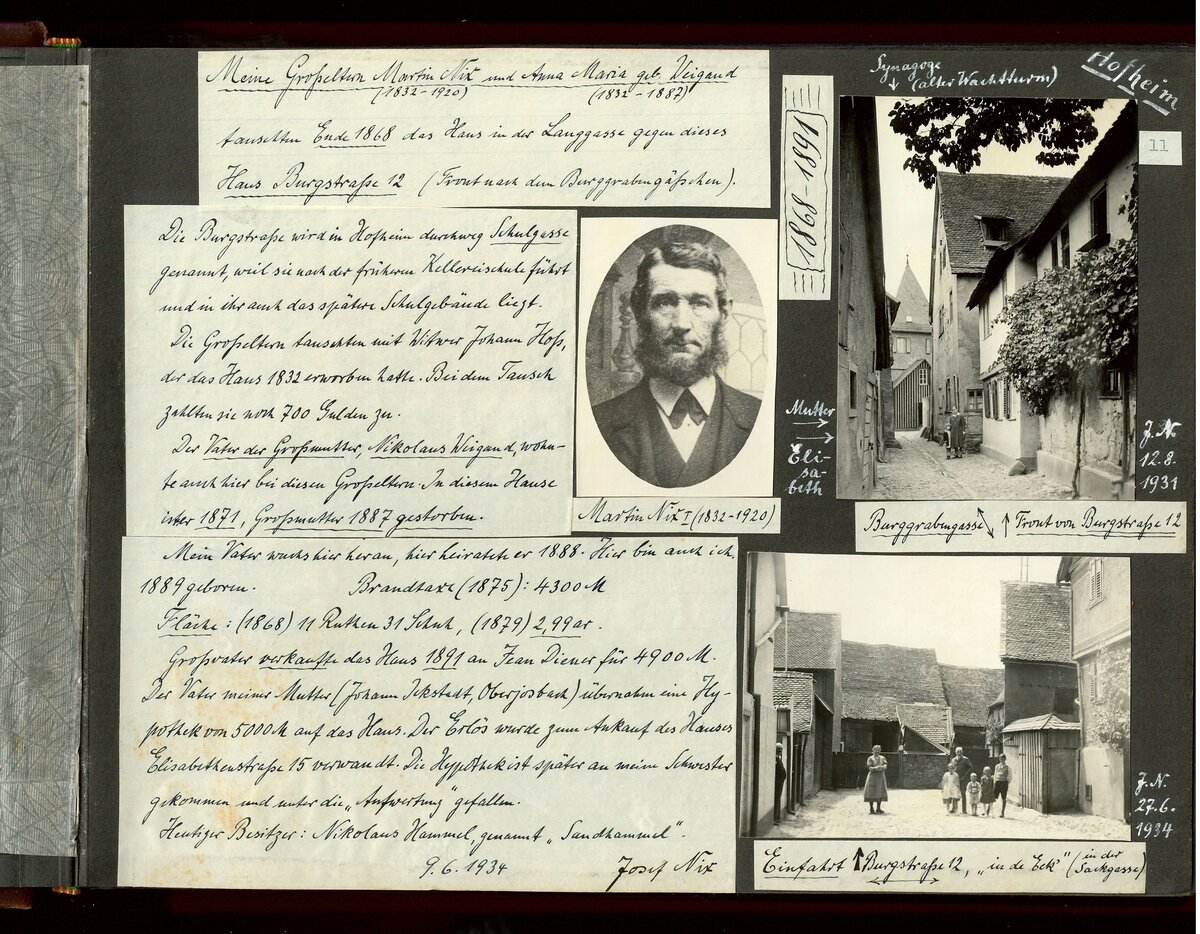 Meine Großeltern Martin Nix und Anna Maria geb. Weigand
(1832-1920) (1832-1887)
tauschten Ende 1868 das Haus in der Langgasse gegen dieses
Haus Burgstraße 12 (Front nach dem Burggrabengäßchen).
Die Burgstraße wird in Hofheim durchweg Schulgasse
genannt, weil sie nach der früheren Kellereischule führt
und in ihr auch das spätere Schulgebäude liegt.
Die Großeltern tauschten mit Witwer Johann Hoß,
der das Haus 1832 erworben hatte. Bei dem Tausch
zahlten sie noch 700 Gulden zu.
Der Vater der Großmutter, Nikolaus Weigand, wohn-
te auch hier bei diesen Großeltern. In diesem Hause
ist er 1871, Großmutter 1887 gestorben.
Mein Vater wuchs hier heran, hier heiratete er 1888. Hier bin auch ich
1889 geboren. Brandtaxe (1875): 4300 M
Fläche: (1868) 11 Ruthen 31 Schuh, (1879) 2,99 ar.
Großvater verkaufte das Haus 1891 an Jean Diener für 4900 M.
Der Vater meiner Mutter (Johann Ickstadt, Oberjosbach) übernahm eine Hy-
pothek von 5000 M auf das Haus. Der Erlös wurde zum Ankauf des Hauses
Elisabethenstraße 15 verwandt. Die Hypothek ist später an meine Schwester
gekommen und unter die „Aufwertung" gefallen.
Heutiger Besitzer: Nikolaus Hammel, genannt „Sandhammel".
9.6.1934 Josef Nix
Martin Nix I (1832-1920)
1868-1891
Synagoge
↓ (alter Wachtturm)
Hofheim
11
Mutter
→
Eli-
sa-
beth
J.N.
12.8.
1931
Burggrabengasse ↑ Front von Burgstraße 12
J.N.
27.6.
1934
Einfahrt ↑ Burgstraße 12, „in de Eck" (in der
Sackgasse)